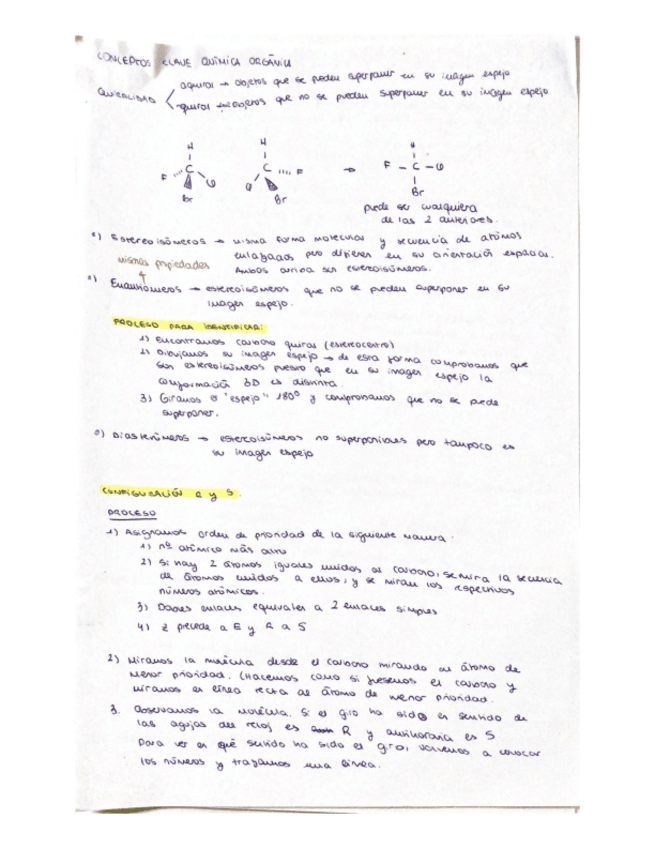 CONCEPTOS CLAVE QUÍMICA ORGÁNICA
aquiral → objetos que se pueden superponer en su imágen espejo
QUIRALIDAD
quiral → objetos que no se pueden superponer en su imágen espejo
H H H
F C Cl Br
Cl C F Br
F - C - Cl
Br
puede ser cualquiera
de las 2 anteriores.
Estereoisómeros → misma forma molecular y secuencia de átomos
enlazados pero difieren en su orientación espacial.
mismas propiedades
Ambos arriba son estereoisómeros.
Enantiómeros → estereoisómeros que no se pueden superponer en su
imagen espejo.
PROCESO PARA IDENTIFICAR:
1) Encontramos carbono quiral (estereocentro)
2) Dibujamos su imagen espejo → de esta forma comprobamos que
son estereoisómeros puesto que en su imagen espejo la
conformación 3D es distinta.
3) Giramos el "espejo" 180º y comprobamos que no se puede
superponer.
Diasterómeros → estereoisómeros no superponibles pero tampoco es
su imagen espejo
CONFIGURACIÓN R y S.
PROCESO
1) Asignamos orden de prioridad de la siguiente manera.
1) nº atómico más alto
2) Si hay 2 átomos iguales unidos al carbono, se mira la secuencia
de átomos unidos a ellos, y se miran los respectivos
números atómicos.
3) Dobles enlaces equivalen a 2 enlaces simples
4) Z precede a E y R a S
2) Miramos la molécula desde el carbono mirando al átomo de
menor prioridad. (Hacemos como si fuésemos el carbono y
miramos en línea recta al átomo de menor prioridad.
3. Observamos la molécula. Si el giro ha sido en sentido de
las agujas del reloj es R y antihorario es S
Para ver en qué sentido ha sido el giro, volvemos a colocar
los números y trazamos una línea.